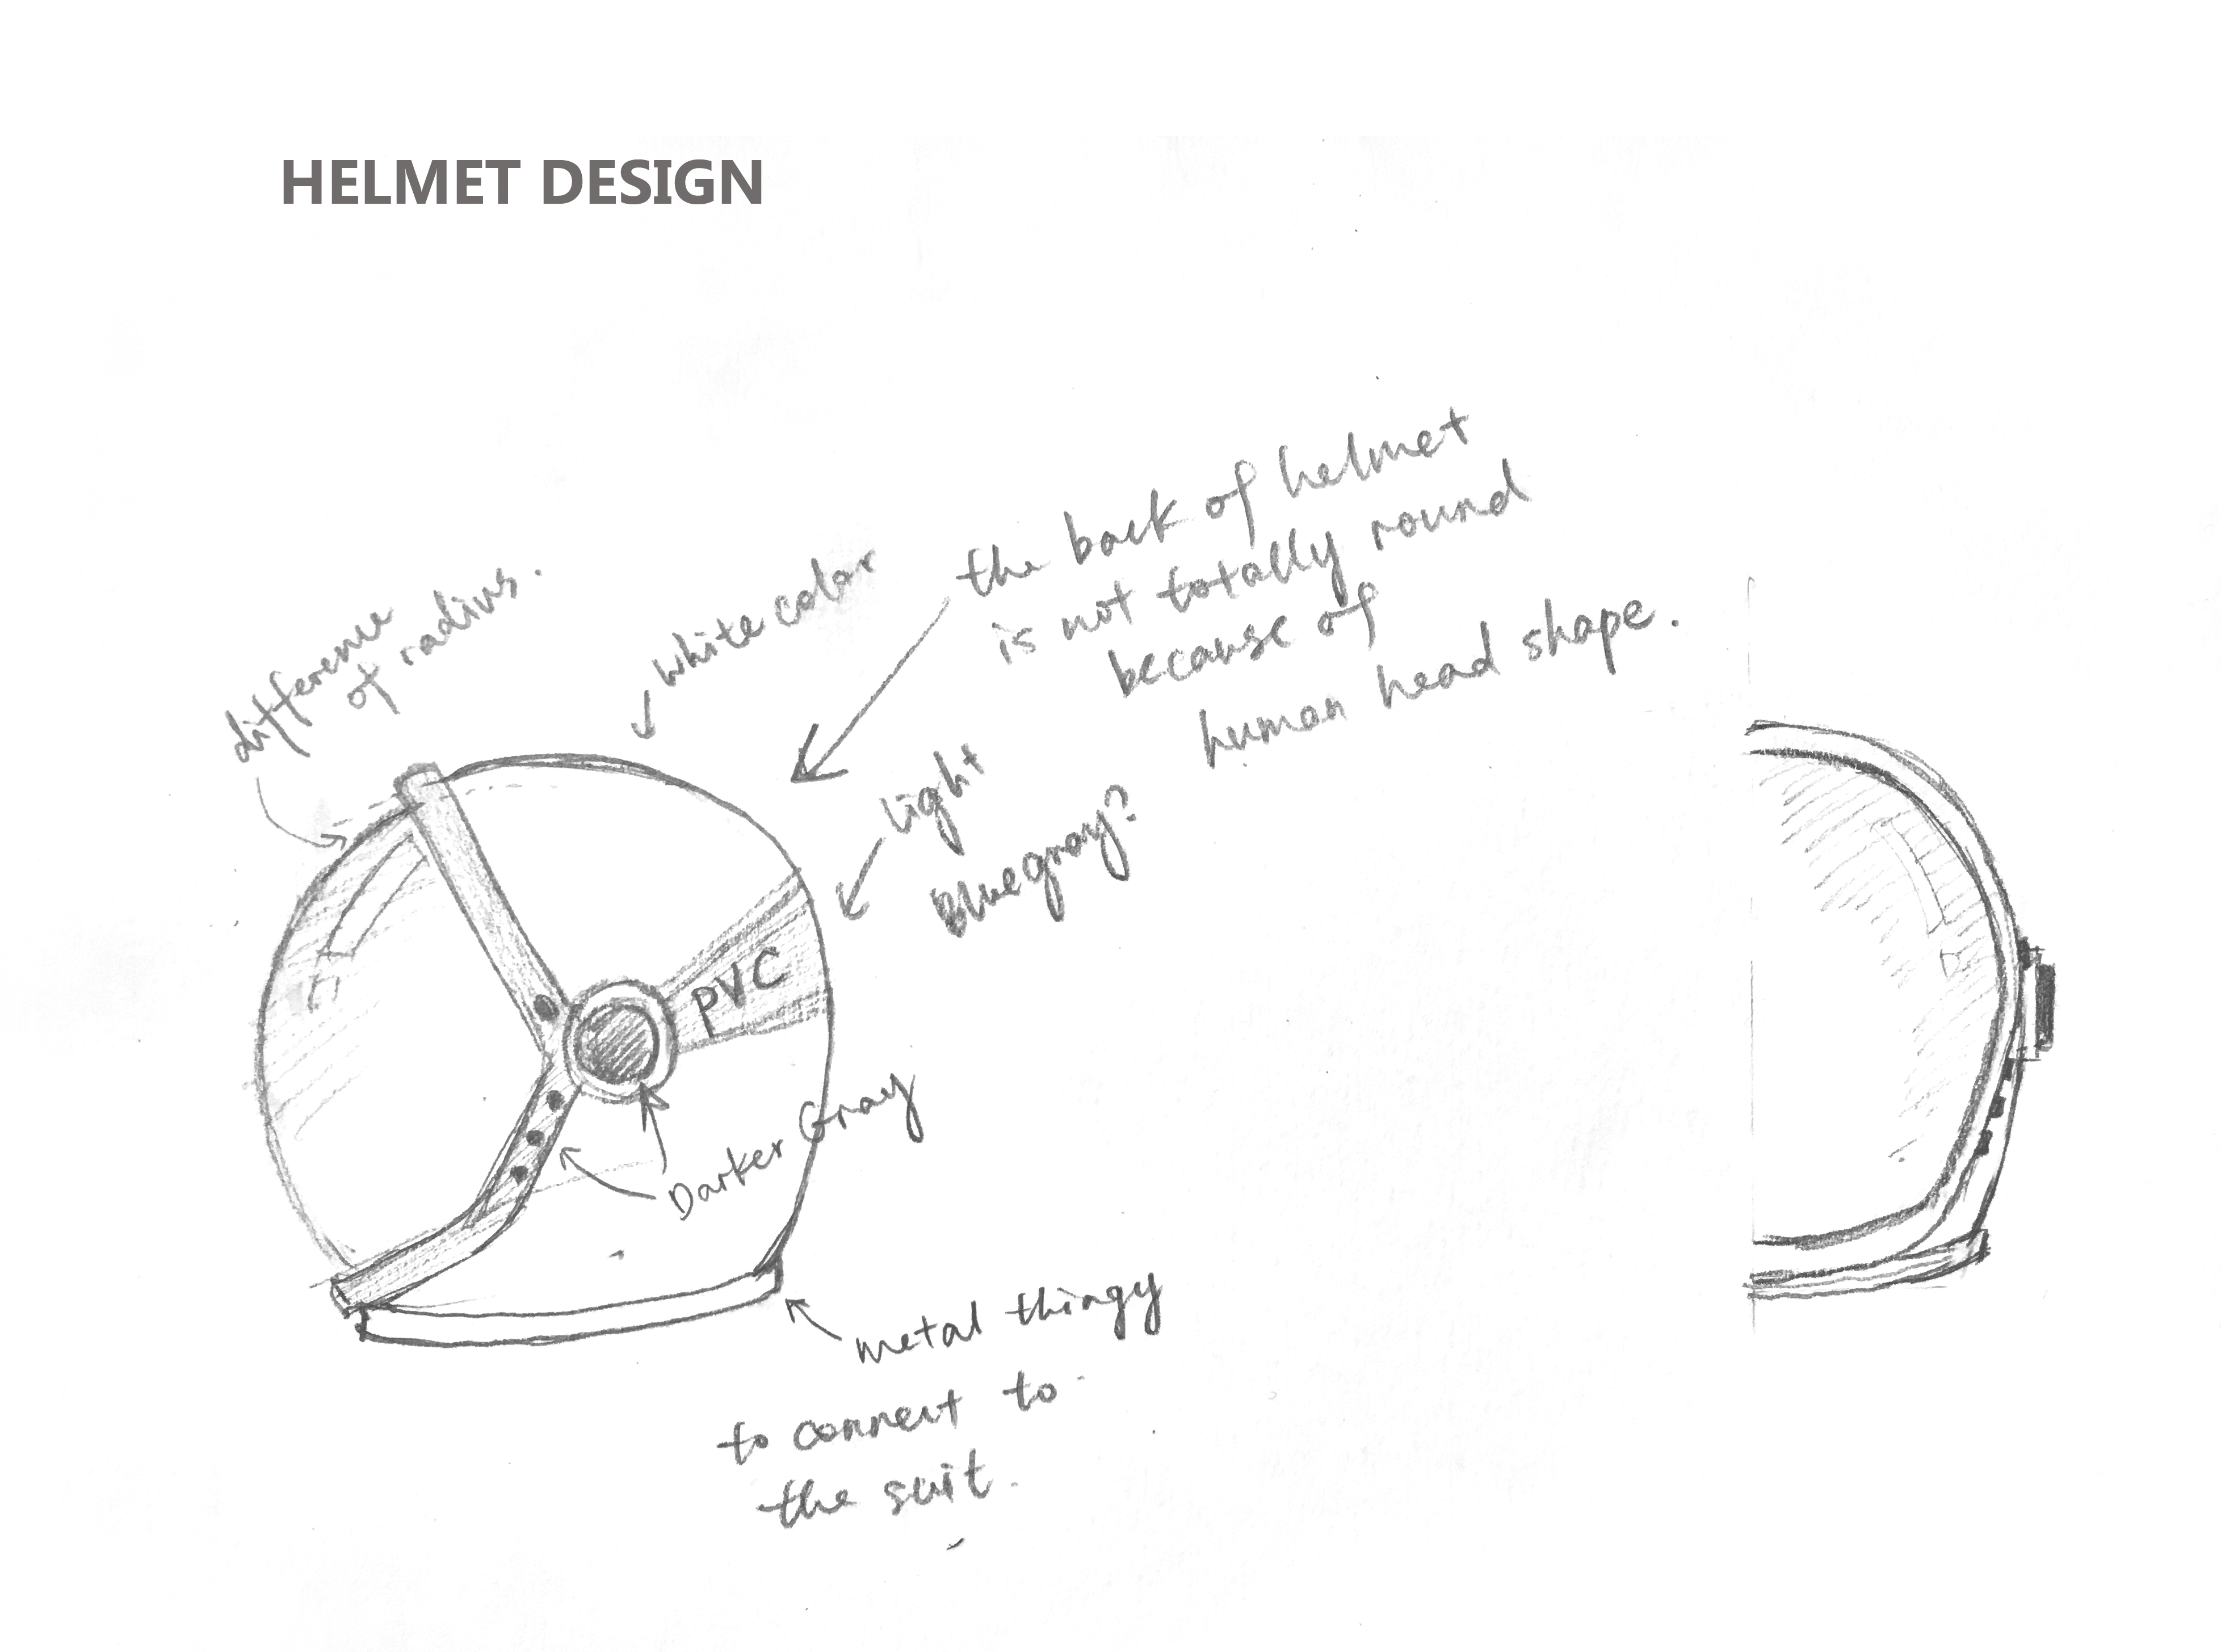 HELMET DESIGN
difference
of radius.
white color
the back of helmet
is not totally round
because of
human head shape.
light
Bluegray?
PVC
Darker Gray
metal thingy
to connect to
the suit.